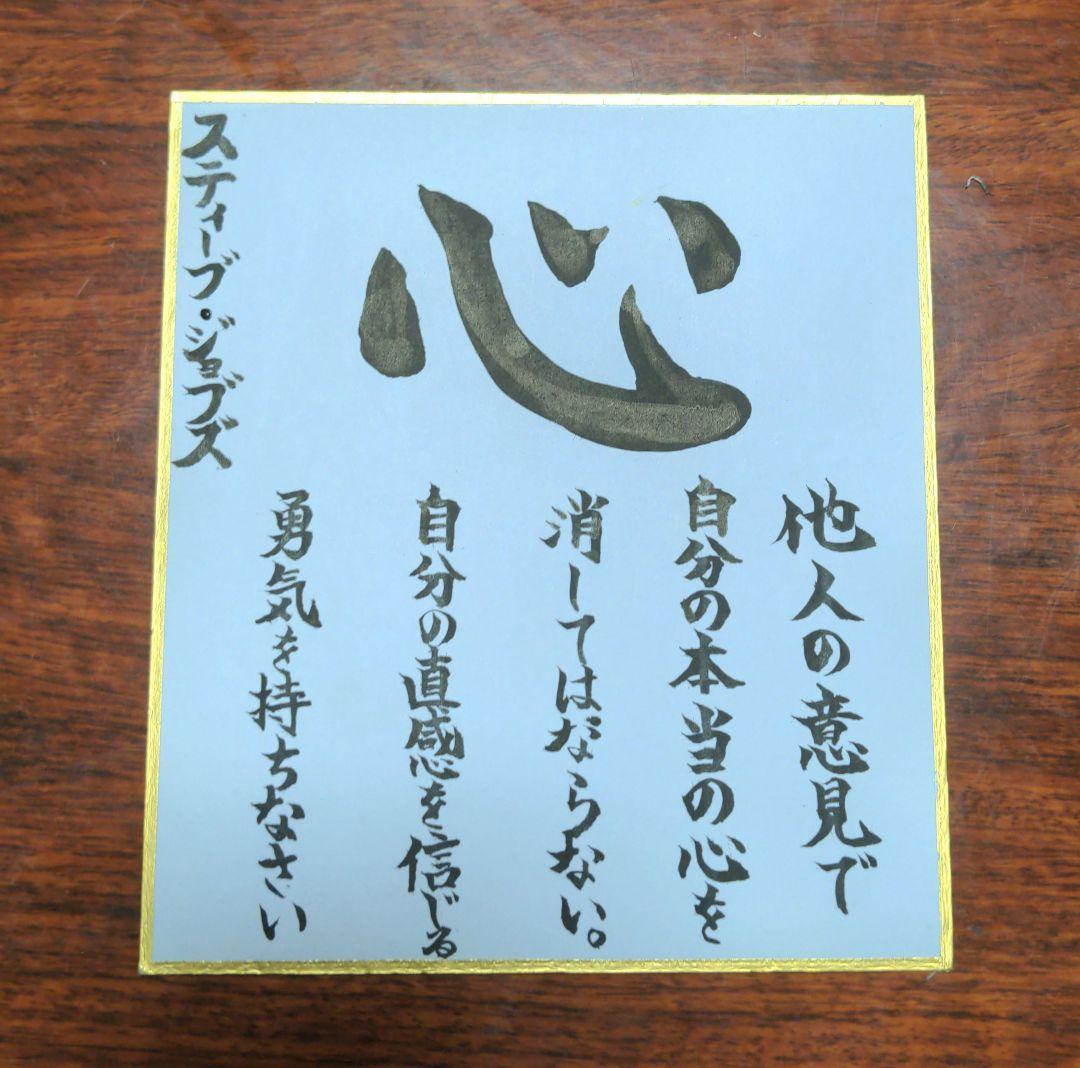 心
他人の意見で
自分の本当の心を
消してはならない。
自分の直感を信じる
勇気を持ちなさい
スティーブ・ジョブズ